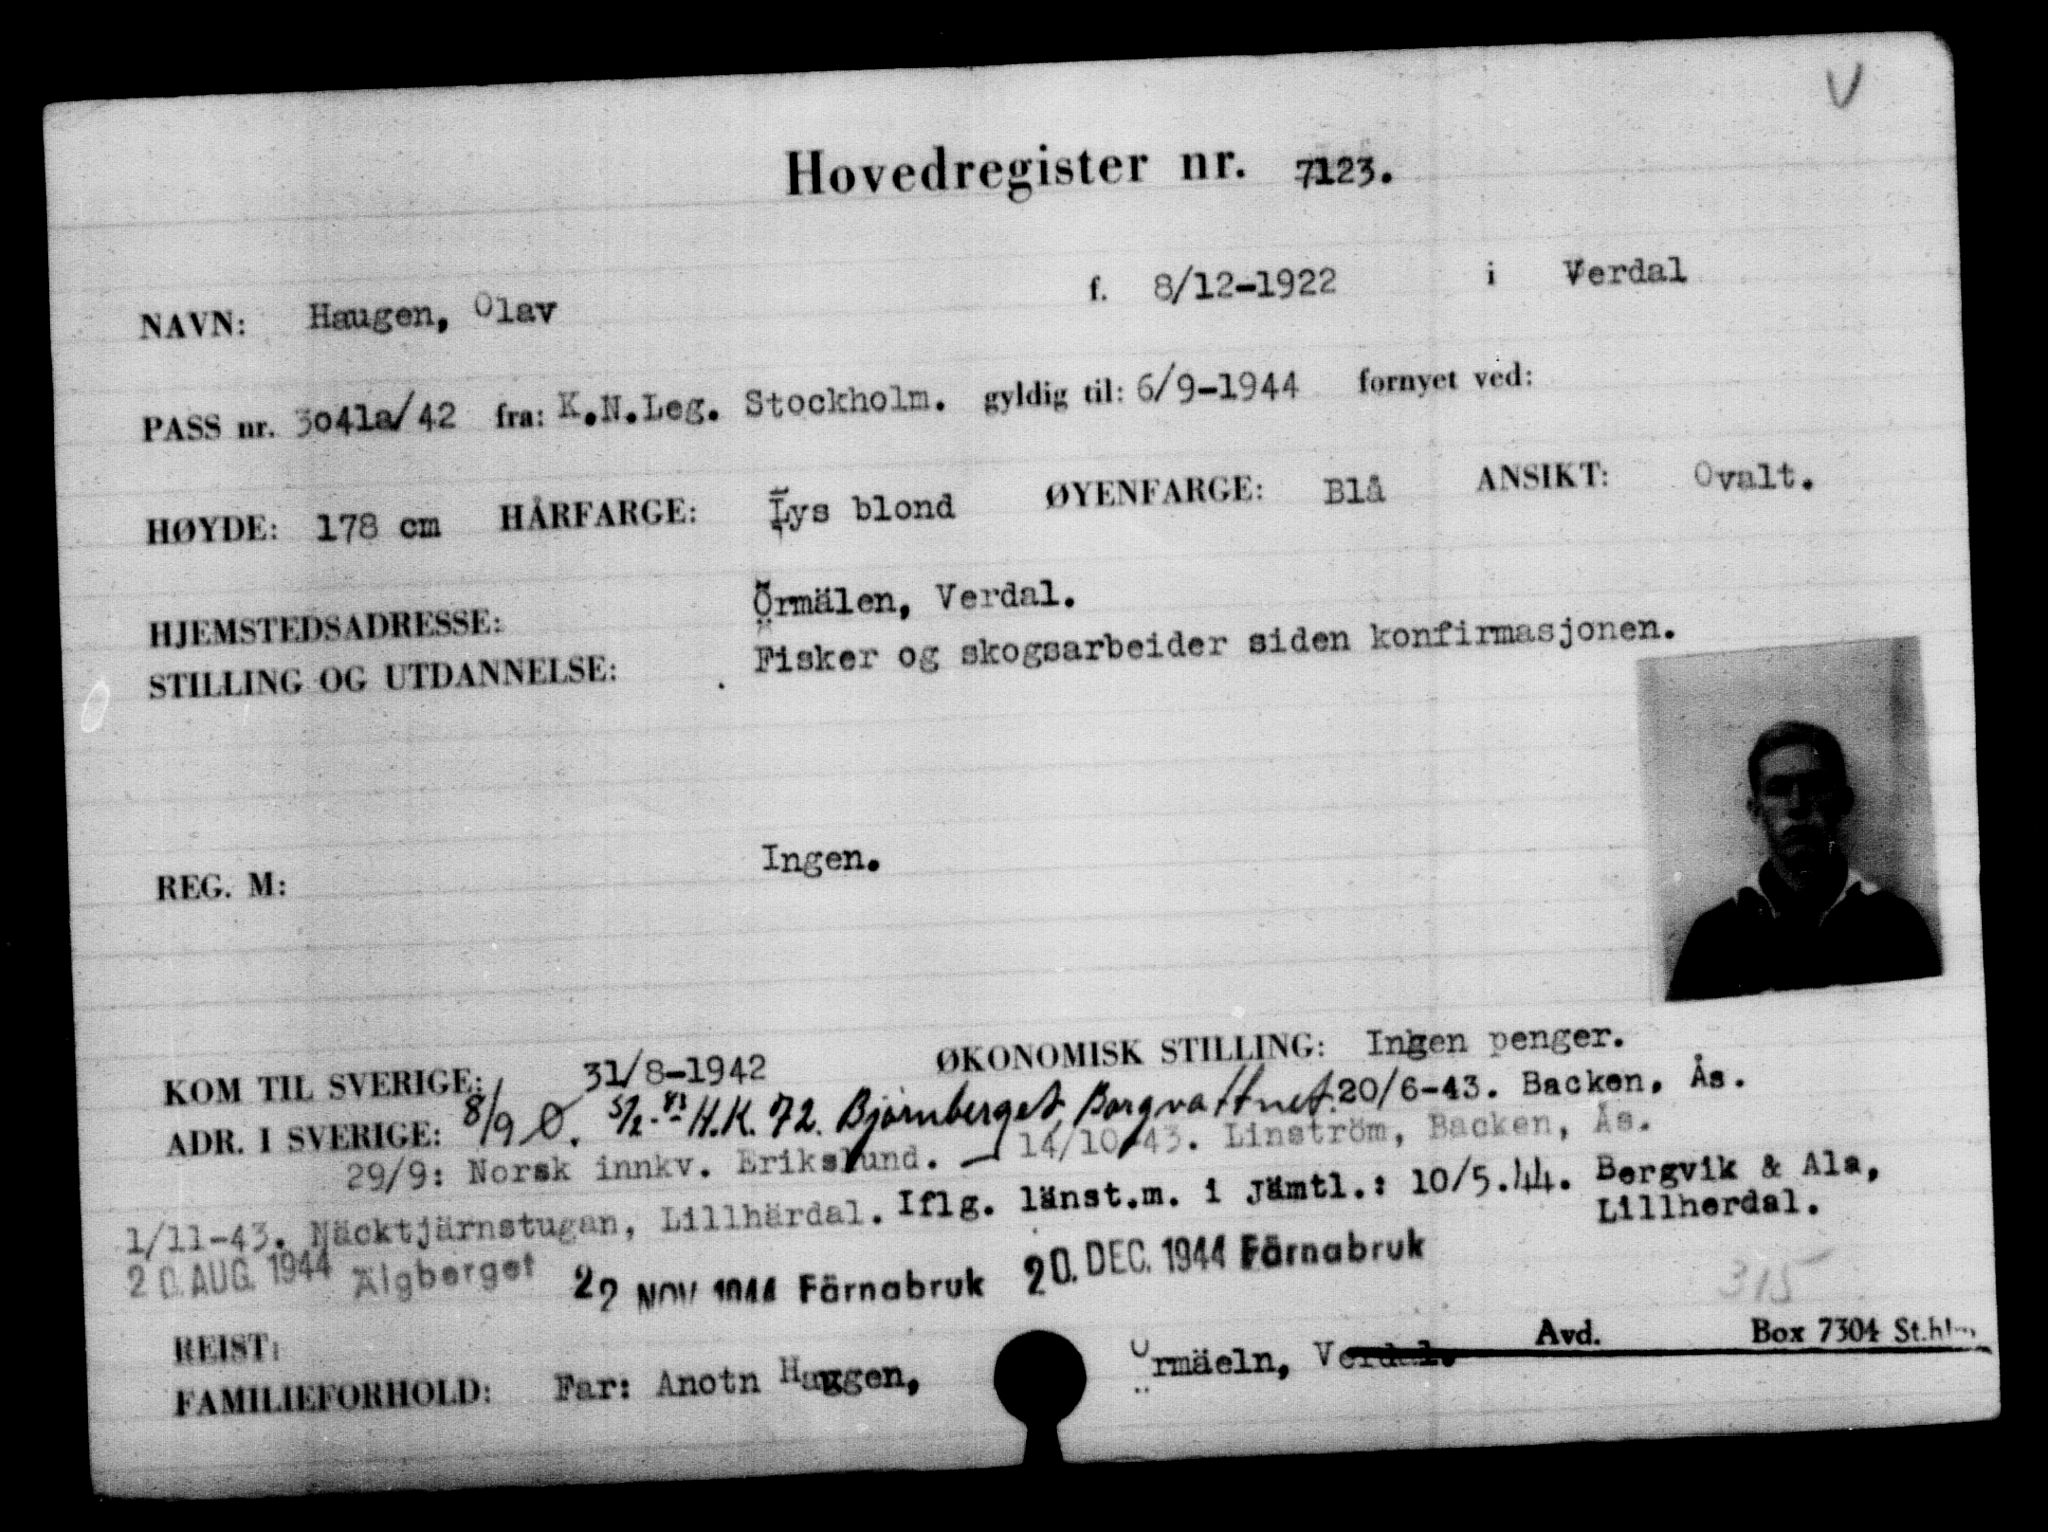 V
Hovedregister nr. 7123.
NAVN: Haugen, Olav f. 8/12-1922 i Verdal
PASS nr. 3041a/42 fra: K.N.Leg. Stockholm. gyldig til: 6/9-1944 fornyet ved:
HØYDE: 178 cm HÅRFARGE: Lys blond ØYENFARGE: Blå ANSIKT: Ovalt.
HJEMSTEDSADRESSE: Örmälen, Verdal.
STILLING OG UTDANNELSE: Fisker og skogsarbeider siden konfirmasjonen.
REG. M: Ingen.
KOM TIL SVERIGE: 31/8-1942 ØKONOMISK STILLING: Ingen penger.
ADR. I SVERIGE: 8/9 Ø. 5/2-43 H.K. 72. Bjørnberget Borgvattnet. 20/6-43. Backen, Ås.
29/9: Norsk innkv. Erikslund. — 14/10-43. Linström, Backen, Ås.
1/11-43. Näcktjärnstugan, Lillhärdal. Iflg. länst.m. i Jämtl.: 10/5.44. Bergvik & Ala, Lillherdal.
20. AUG. 1944 Älgberget 22 NOV 1944 Färnabruk 20. DEC. 1944 Färnabruk
315
REIST: Avd. Box 7304 St.hlm
FAMILIEFORHOLD: Far: Anotn Haugen, Örmäeln, Verdal.